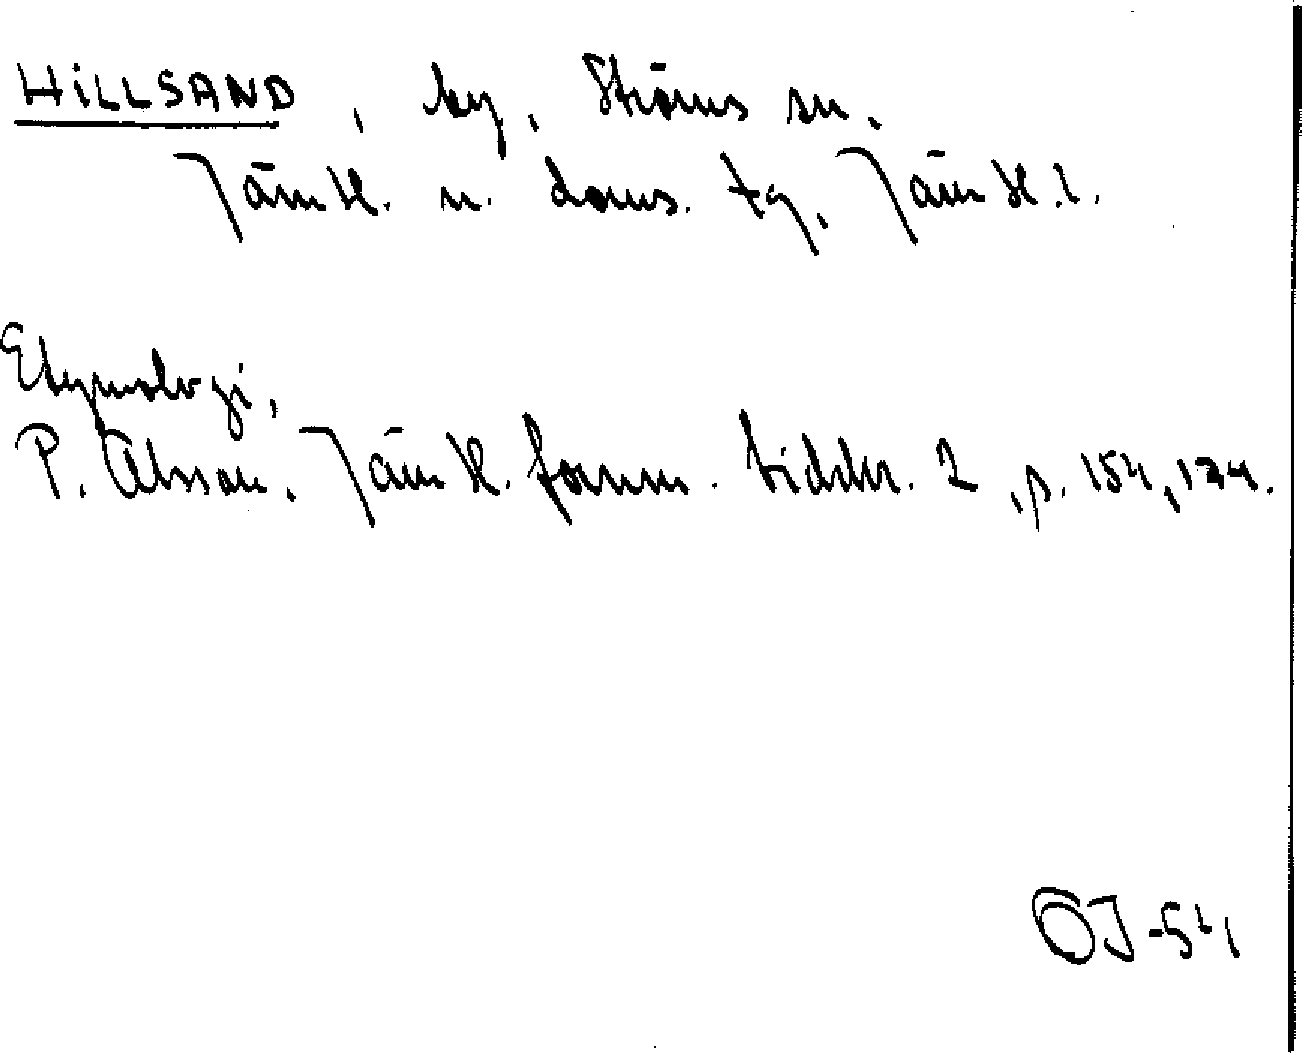 HILLSAND, by, Ströms sn.
Jämtl. n. doms. tg, Jämtl. l.
Etymologi,
P. Olsson, Jämtl. fornm. tidskr. 2, p. 154, 174.
ÖJ-54